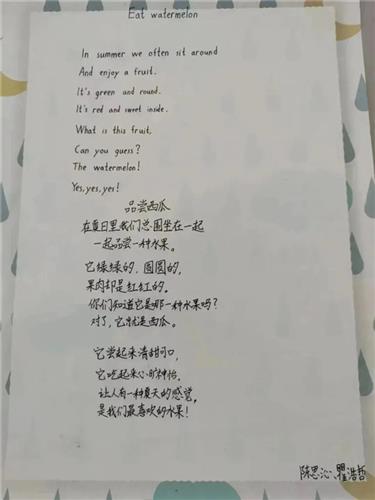 Eat watermelon
In summer we often sit around
And enjoy a fruit.
It's green and round.
It's red and sweet inside.
What is this fruit,
Can you guess?
The watermelon!
Yes,yes,yes!
品尝西瓜
在夏日里我们总围坐在一起
一起品尝一种水果。
它绿绿的、圆圆的,
果肉却是红红的。
你们知道它是那一种水果吗?
对了,它就是西瓜。
它尝起来清甜可口,
它吃起来心旷神怡,
让人有一种夏天的感觉,
是我们最喜欢的水果!
陈思沁、瞿浩哲